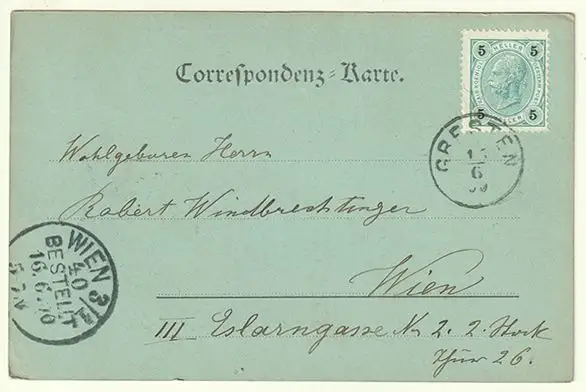 Correspondenz-Karte.
5 HELLER 5
5 HELLER 5
GRESTEN
6
Wohlgeboren Herrn
Robert Windbrechtinger
Wien
III Eslarngasse No 2. 2. Stock
Thür 26.
WIEN 3/1
40
BESTELLT
16.6.00